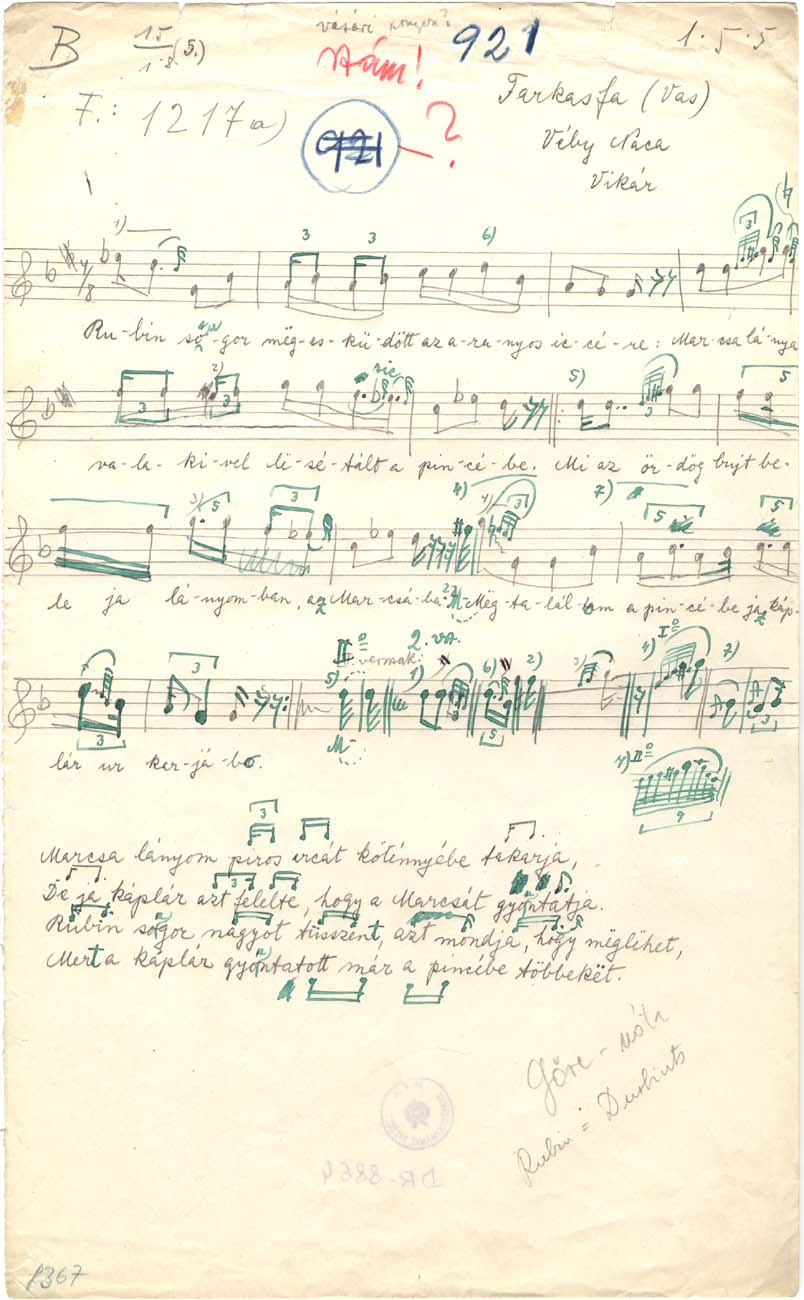 B
15
18 (5.)
vásári
921
1. 5. 5
Szám!
F.: 1217 a)
921 — ?
Farkasfa (Vas)
Véby Naca
Vikár
1)
3
3
6)
3
4/8
Ru-bin so-gor még-es-kü-dött az a-ra-nyos ic-cé-re: Mar-csa lá-nya
2)
sic
5)
5
3
3
3
va-la-ki-vel lë-sé-tált a pin-cé-be. Mi az ör-dög bujt be-
3)
5
3
4)
3
7)
5
5
le ja lá-nyom-ban, az Mar-csá-ba? Mëg-ta-lál-tam a pin-cé-be ja káp-
3
3
2. va.
II. versszak:
5)
1)
6)
5
2)
3)
4) I.º
7)
3
lár ur kar-já-bo.
M-
4) II.º
9
3
Marcsa lányom piros orcát köténnyébe takarja,
De ja káplár azt felelte, hogy a Marcsát gyóntatja.
Rubin sógor nagyot tüsszent, azt mondja, hogy mëglëhet,
Mert a káplár gyóntatott már a pincébe többekët.
Göre-nóta
Rubin = Durbints
DR-8864
1367